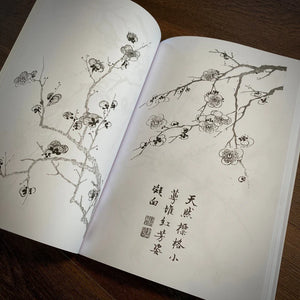 天然標格小
萼堆紅芳姿
凝白